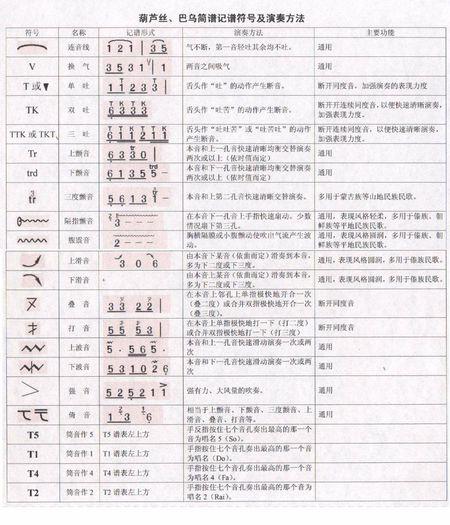 葫芦丝、巴乌简谱记谱符号及演奏方法
符号 名称 记谱形式 演奏方法 主要功能
连音线 1 2 1 3 5 气不断，第一音轻吐其余均不吐。 通用
V 换气 3 5 3 1 1 两音之间吸气 通用
T 或▼ 单吐 1 1 2 3 3 舌头作“吐”的动作产生断音。 断开同度音，加强演奏的表现力度
TK 双吐 6 6 3 3 舌头作“吐苦”的动作产生断音。 断开开连续同度音，以便快速清晰演奏，
加强表现力度。
TTK 或 TKT 三吐 1 1 1 2 1 1 舌头作“吐吐苦”或“吐苦吐”的动作
产生断音。 断开连续同度音，以便快速清晰演奏，
加强表现力度。
Tr 上颤音 6 3 3 0 本音和上一孔音快速清晰均衡交替演奏
两次或以上（依时值而定） 通用
trd 下颤音 6 1 3 5 5 – 本音和下一孔音快速清晰均衡交替演奏
两次或以上（依时值而定） 通用
3
tr 三度颤音 5 6 1 3 1 – 本音和上第二孔音快速清晰交替演奏。 多用于蒙古族等山地民族民歌。
隔指颤音 3 – – – 在本音下一孔音上手指快速扇动。少数
情况扇下第三孔。 通用，表现风格轻柔，多用于傣族、朝
鲜族等平地民族民歌。
腹震音 2 – – – 胸横隔膜或小腹颤动使吹出气流产生波
动。 通用，表现风格圆润，多用于傣族、朝
鲜族等平地民族民歌。
上滑音 3 0 6 由本音下某音（依曲而定）滑奏到本音，
多为下二度或下三度。 通用，表现风格圆润，多用于傣族民歌。
下滑音 由本音上某音（依曲而定）滑奏到本音，
多为下二度或下三度。 通用，表现风格圆润，多用于傣族民歌。
又 叠音 3 3 2 2 在本音上邻孔上单指极快地开合一次
（叠二度）或合并双指极快地开合一次
（叠三度）。 断开同度音
扌 打音 5 5 5 3 在本音上单指极快地打一下（打二度）
或合并双指极快地打一下（打三度） 断开同度音
上波音 5 . 5 6 5 . 本音和上一孔音快速滑动演奏一次或两
次 通用
下波音 5 3 1 0 2 6 本音和下一孔音快速滑动演奏一次或两
次 通用
> 强音 5 2 5 2 1 1 强有力、大风量的吹奏。 通用
倚音 1 3 6 相当于上颤音、下颤音、三度颤音、上
滑音、叠音、打音等。 通用
T5 筒音作 5 T5 谱表左上方 手反指按住七个音孔奏出最高的那一个
音为唱名 5（So）。
T1 筒音作 1 T1 谱表左上方 手指按住七个音孔奏出最高的那一个音
为唱名（Do）。
T4 筒音作 4 T4 谱表左上方 手指按住七个音孔奏出最高的那一个音
为唱名 4（Fa）。
T2 筒音作 2 T2 谱表左上方 手指按住七个音孔奏出最高的那个音为
唱名 2（Rai）。